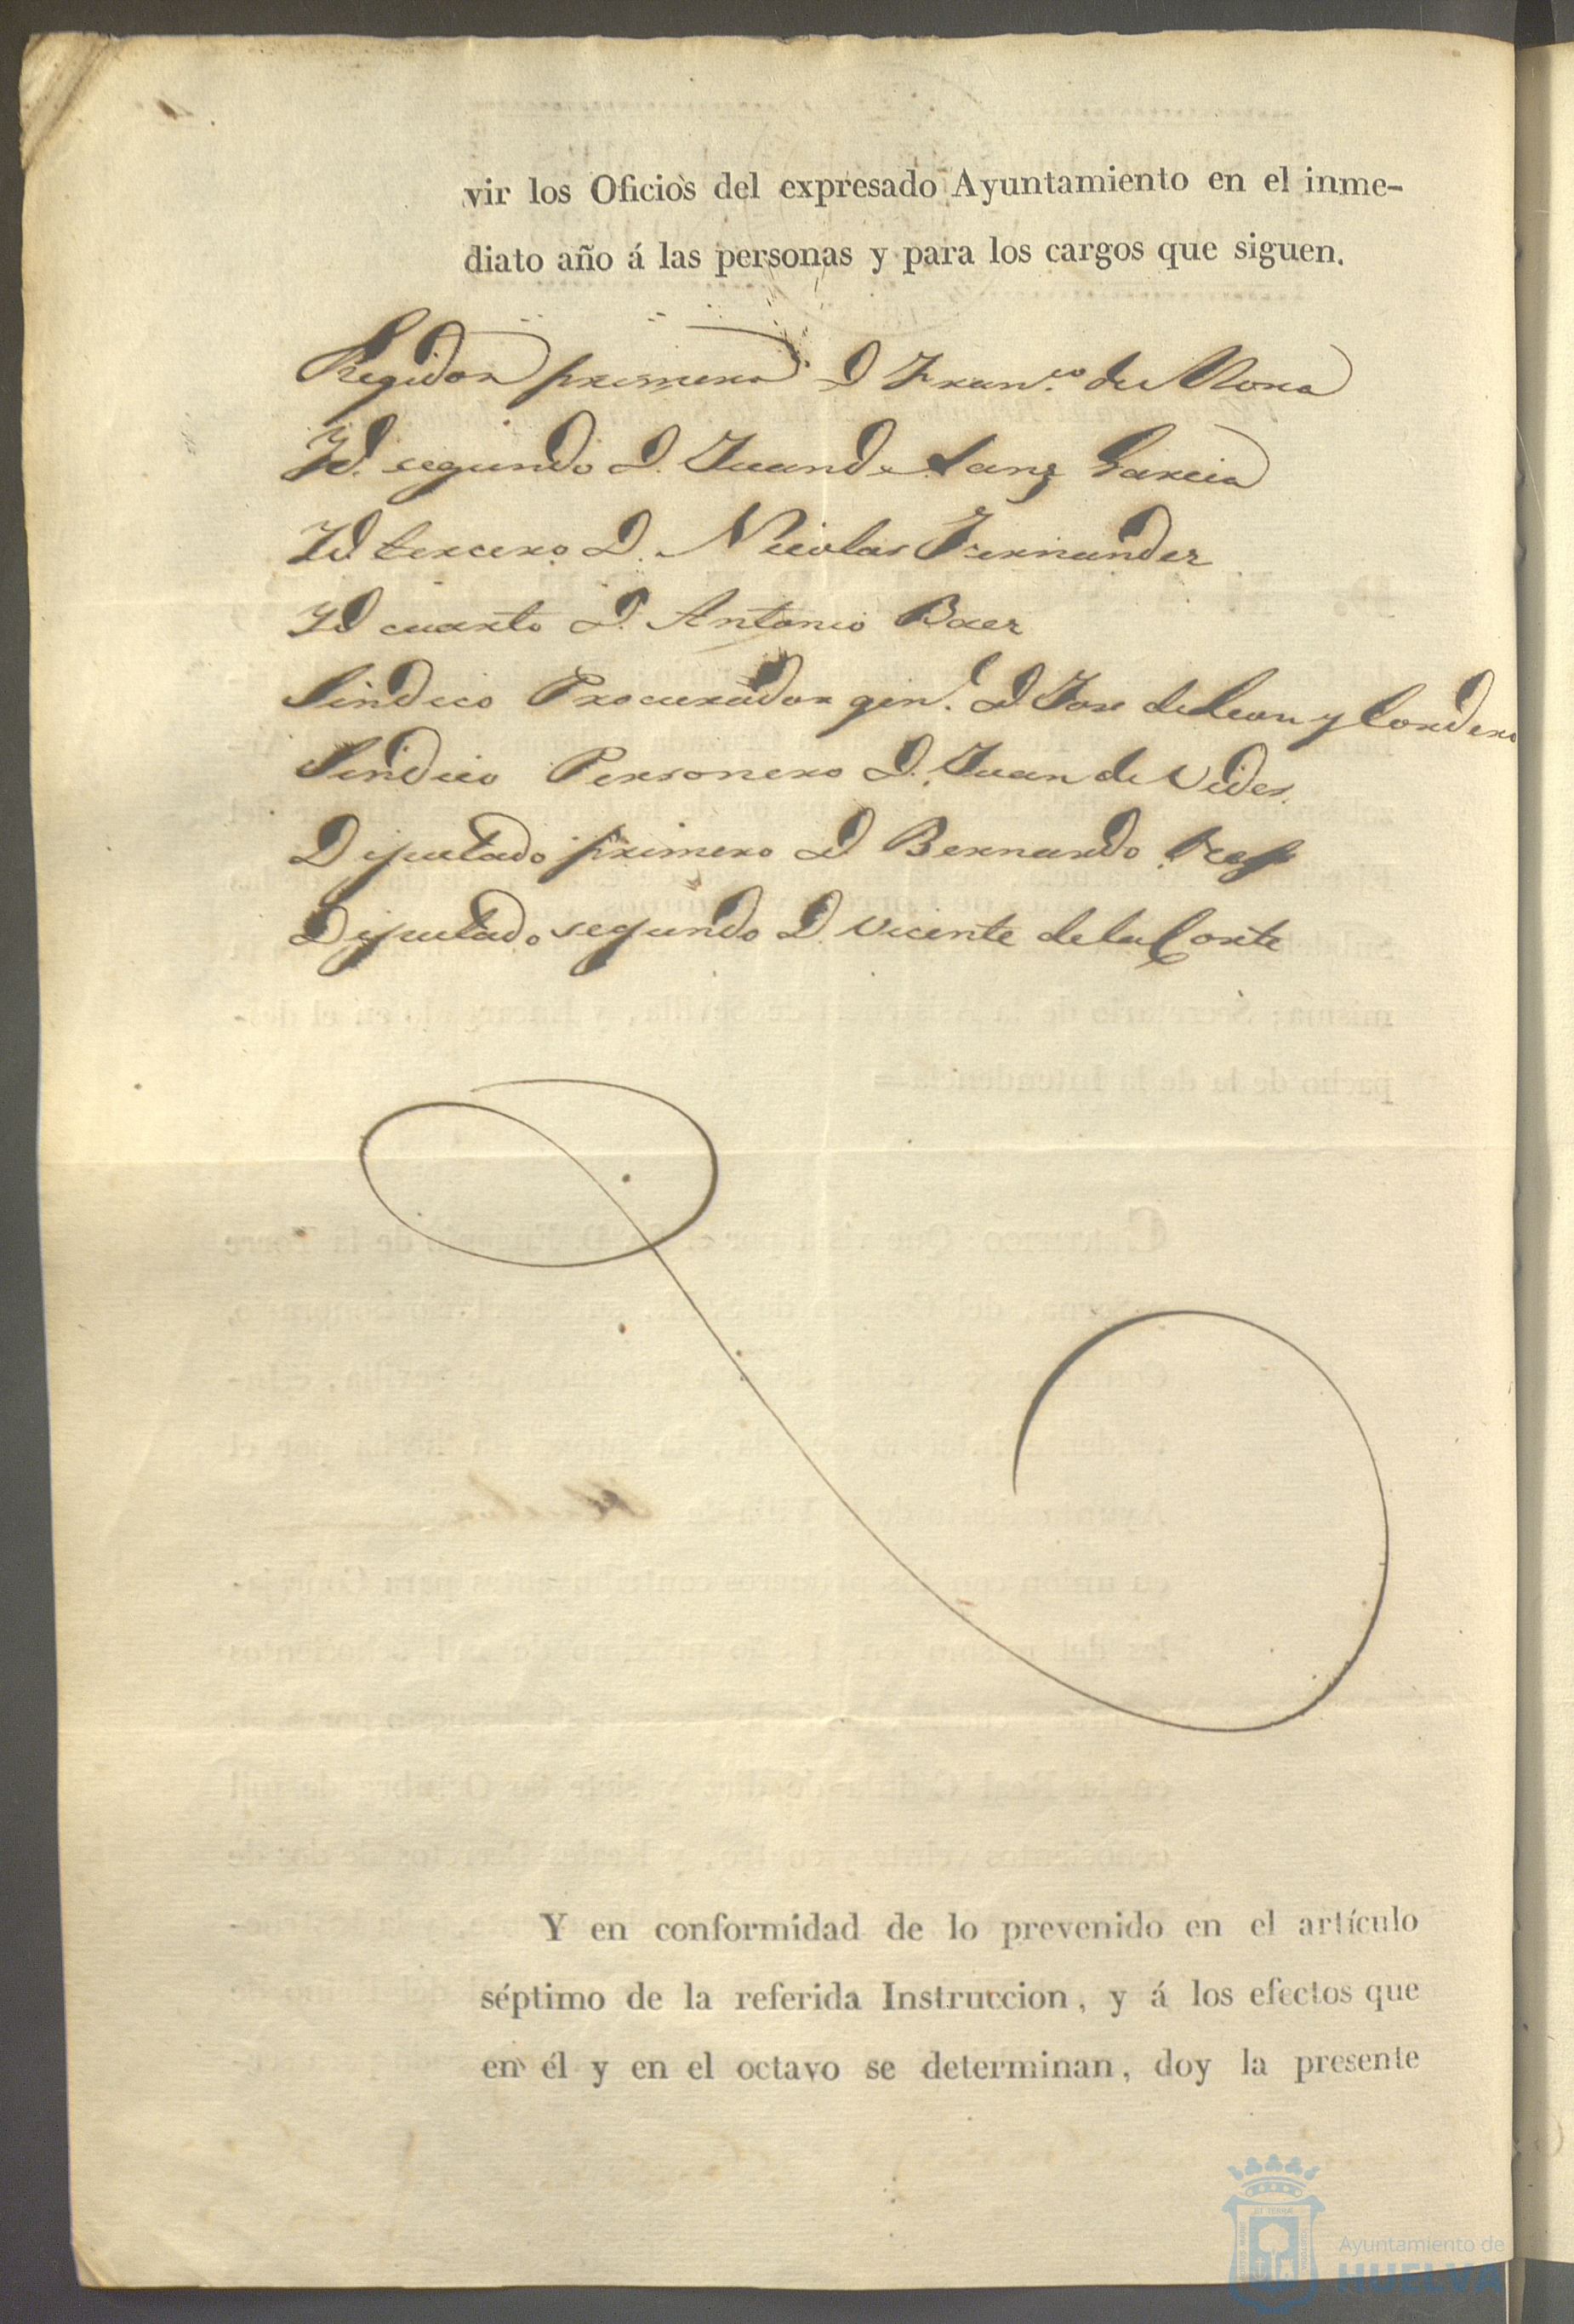 vir los Oficios del expresado Ayuntamiento en el inme-
diato año á las personas y para los cargos que siguen.
Regidor primero D Fran.co de Mora
Yd. segundo D. Juan de Sanz Garcia
Yd tercero D. Nicolas Fernandez
Yd cuarto D. Antonio Baez
Sindico Procurador gen.l D Jose de Leon y Cordero
Sindico Personero D. Juan de Vides.
Diputado primero D Bernardo
Diputado segundo D. Vicente de la Corte
Y en conformidad de lo prevenido en el artículo
séptimo de la referida Instruccion, y á los efectos que
en él y en el octavo se determinan, doy la presente
Ayuntamiento de
HUELVA